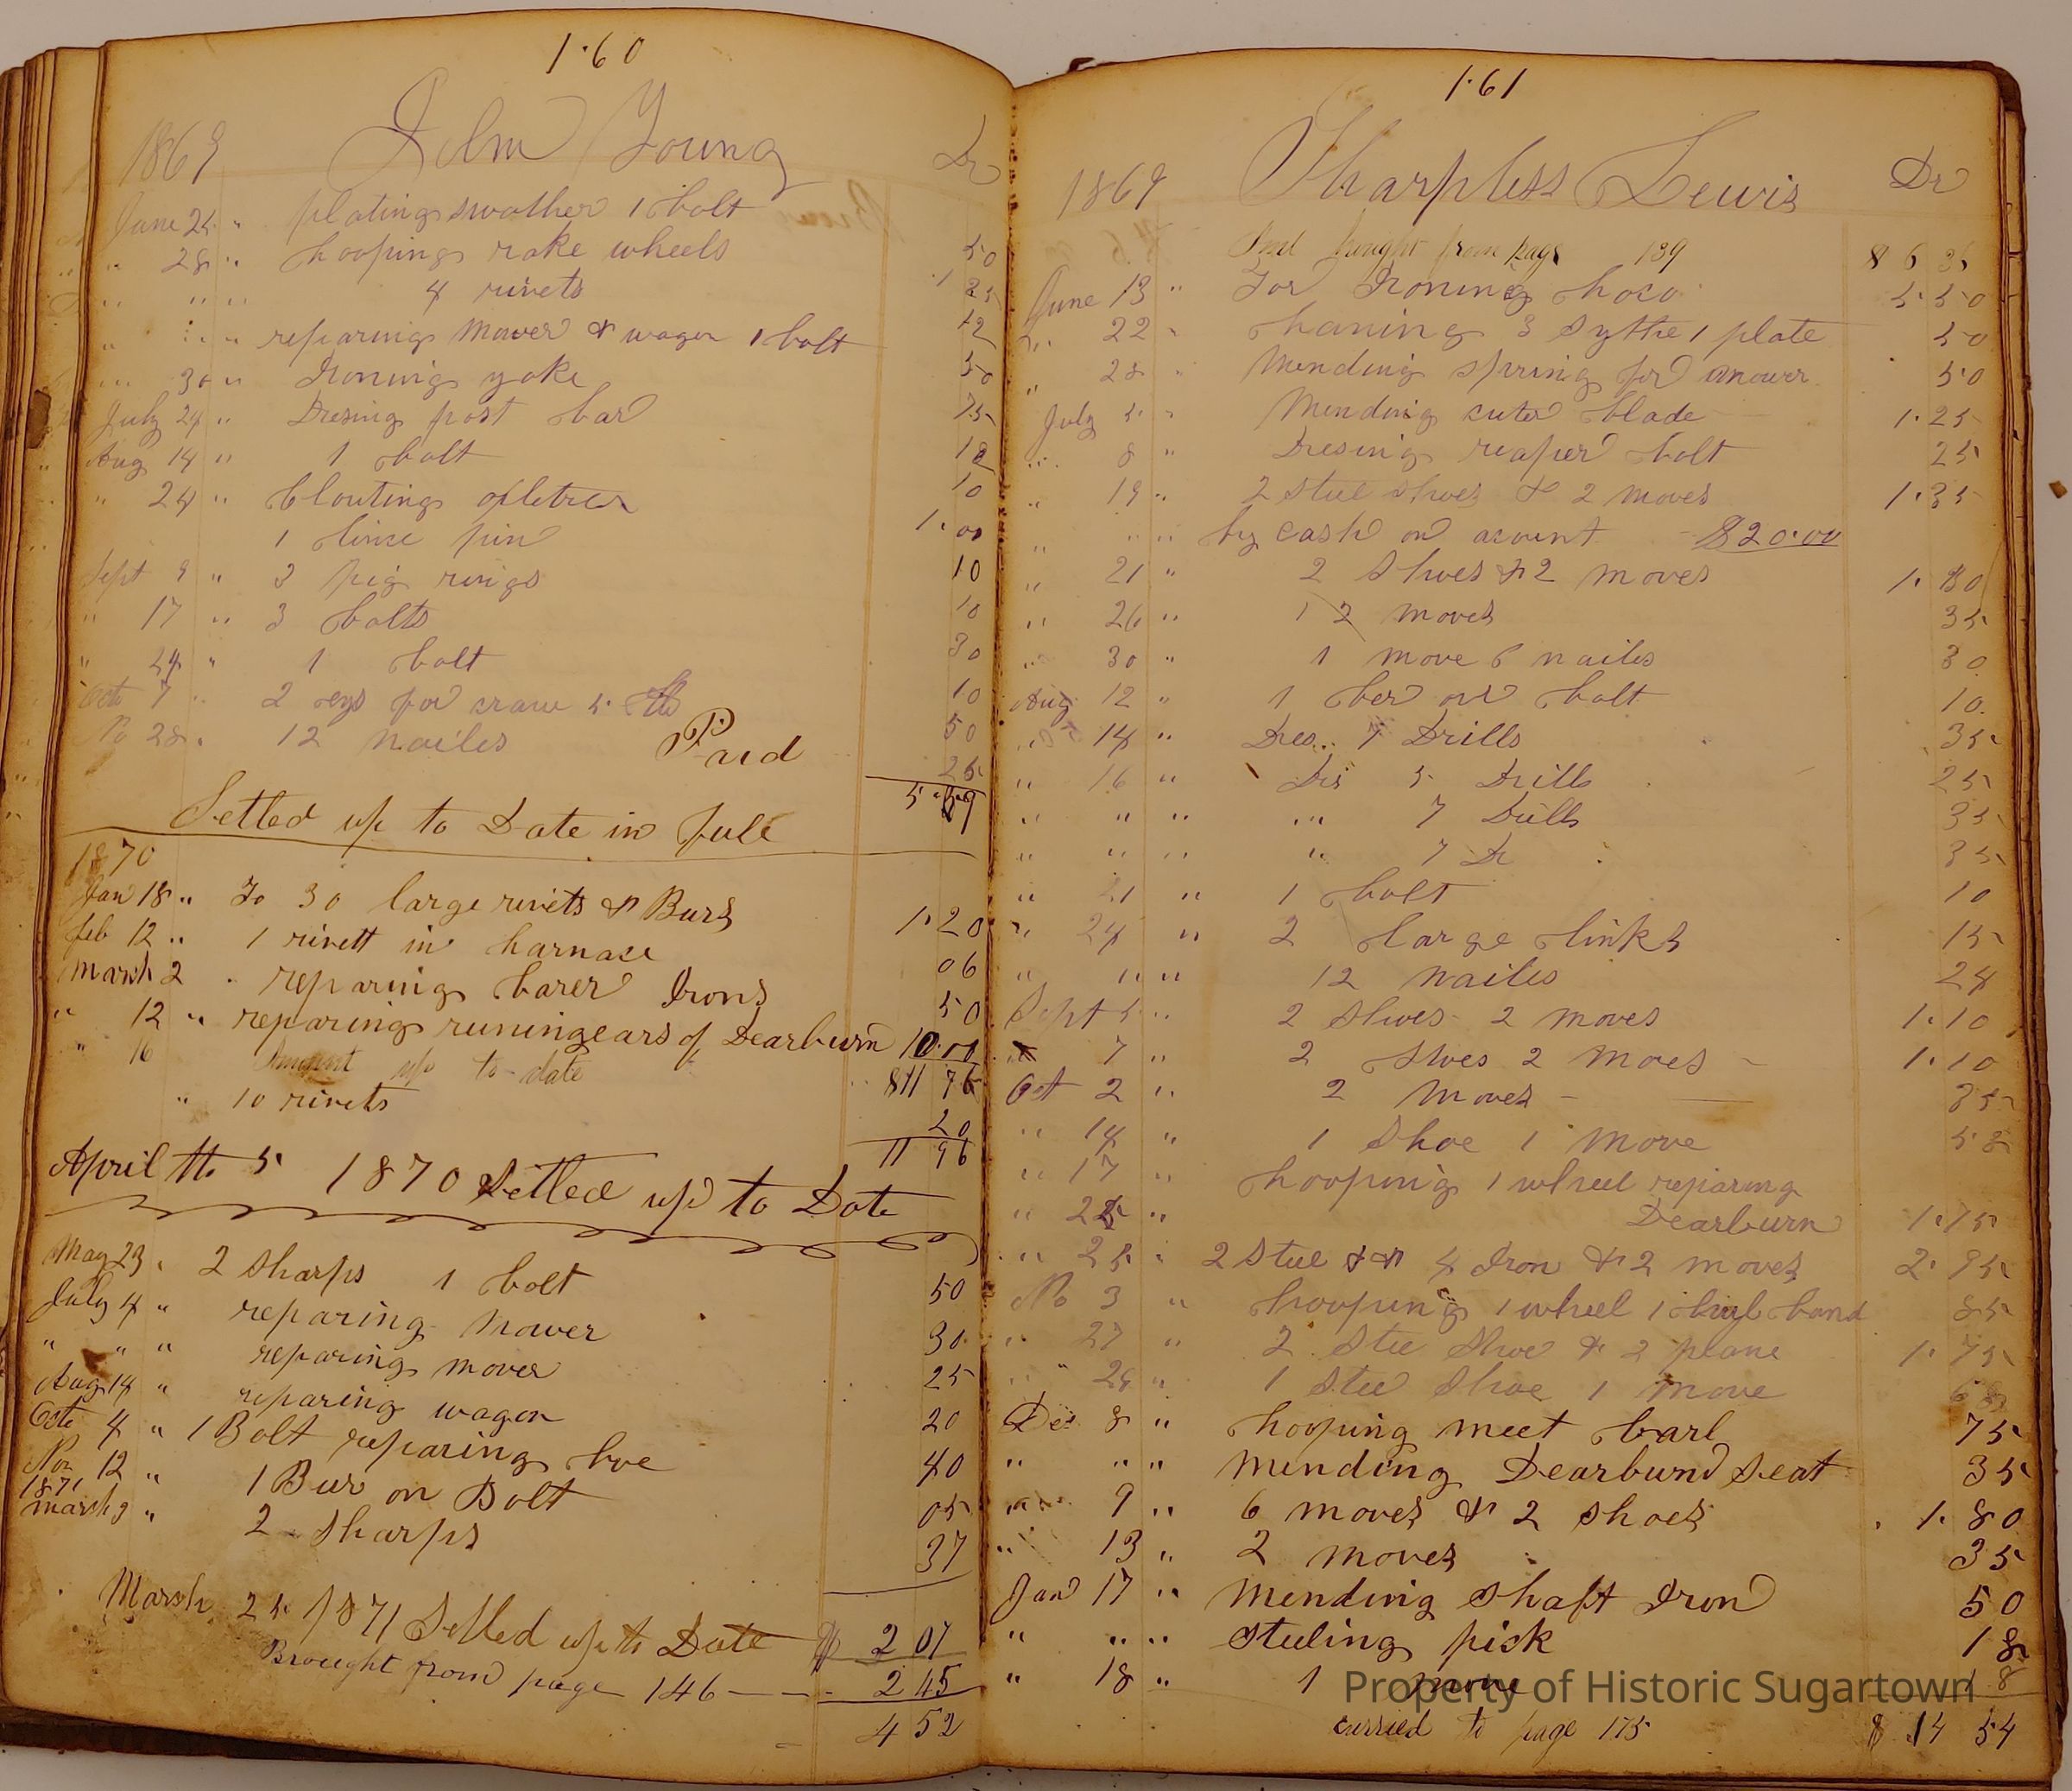 1·60
John Young
1869 Dr
June 25 " plating swather 1 bolt 50
" 28 " hooping rake wheels 1 25
" " " 4 rivets 12
" " " reparing mower & wagon 1 bolt 50
" 30 " Ironing yoke 75
July 24 " Dresing post bar 18
Aug 14 " 1 bolt 10
" 24 " Clouting 1·00
1 linse pin 10
Sept 9 " 3 pig rings 10
" 17 " 3 bolts 30
" 24 " 1 bolt 10
Octo 7 " 2 for 50
No 28 " 12 nailes 25
Paid
5·
Setled up to Date in full
1870
Jan 18 " To 30 large rivets & Burs 1·20
Feb 12 " 1 rivett in harnase 06
Marsh 2 " reparing barer Irons 50
" 12 " reparing runingears of Dearburn 10·00
" 16 Amount up to date 11 76
" 10 rivets 20
11 96
April th 5 1870 Setled up to Date
May 23 " 2 Sharps 1 bolt 50
July 4 " reparing mower 30
" " " reparing mower 25
Aug 14 " reparing wagon 20
Octo 4 " 1 Bolt reparing hoe 40
Nov 12 " 1 Bur on Bolt 05
1871
Marsh 3 " 2 Sharps 37
Marsh 25 1871 Setled up to Date $ 2 07
Brought from page 146 — — - 2 45
4 52
1·61
Sharpless Lewis
1869 Dr
brought from page 139
June 13 " For Ironing 5·50
" 22 " haning 3 sythe 1 plate 50
" 28 " Mending spring for mower 50
July 5 " Mending cuter blade 1·25
" 8 " Dresing reaper bolt 25
" 19 " 2 steel shoes & 2 moves 1·35
" " " by cash on acount $20·00
" 21 " 2 Shoes & 2 moves 1·
" 26 " 1 2 moves 35
" 30 " 1 move 6 nailes 30
Aug 12 " 1 ber on bolt 10
" 14 " Dres.. 7 Drills 35
" 16 " Drs 5 Drills 25
" " " " 7 Drills 35
" " " " 7 Dr 35
" 21 " 1 bolt 10
" 24 " 2 large links 15
" " " 12 nailes 24
Sept 5 " 2 Shoes 2 moves 1·10
" 7 " 2 Shoes 2 moves 1·10
Oct 2 " 2 moves 35
" 14 " 1 Shoe 1 move 58
" 17 " hooping 1 wheel reparing
" " Dearburn 1·75
" 25 " 2 Steel & 4 Iron & 2 moves 2·95
No 3 " hooping 1 wheel 1 band 85
" 27 " 2 Stee Shoe & 2 1·75
" 28 " 1 Stee Shoe 1 move 68
Des 8 " hooping meet barl 75
" " " mending Dearburn Seat 35
" 9 " 6 moves & 2 shoes 1·80
" 13 " 2 moves 35
Jan 17 " mending shaft Iron 50
" " " steeling pick 18
" 18 " 1 move 18
carried to page 175 $ 14 54
Property of Historic Sugartown